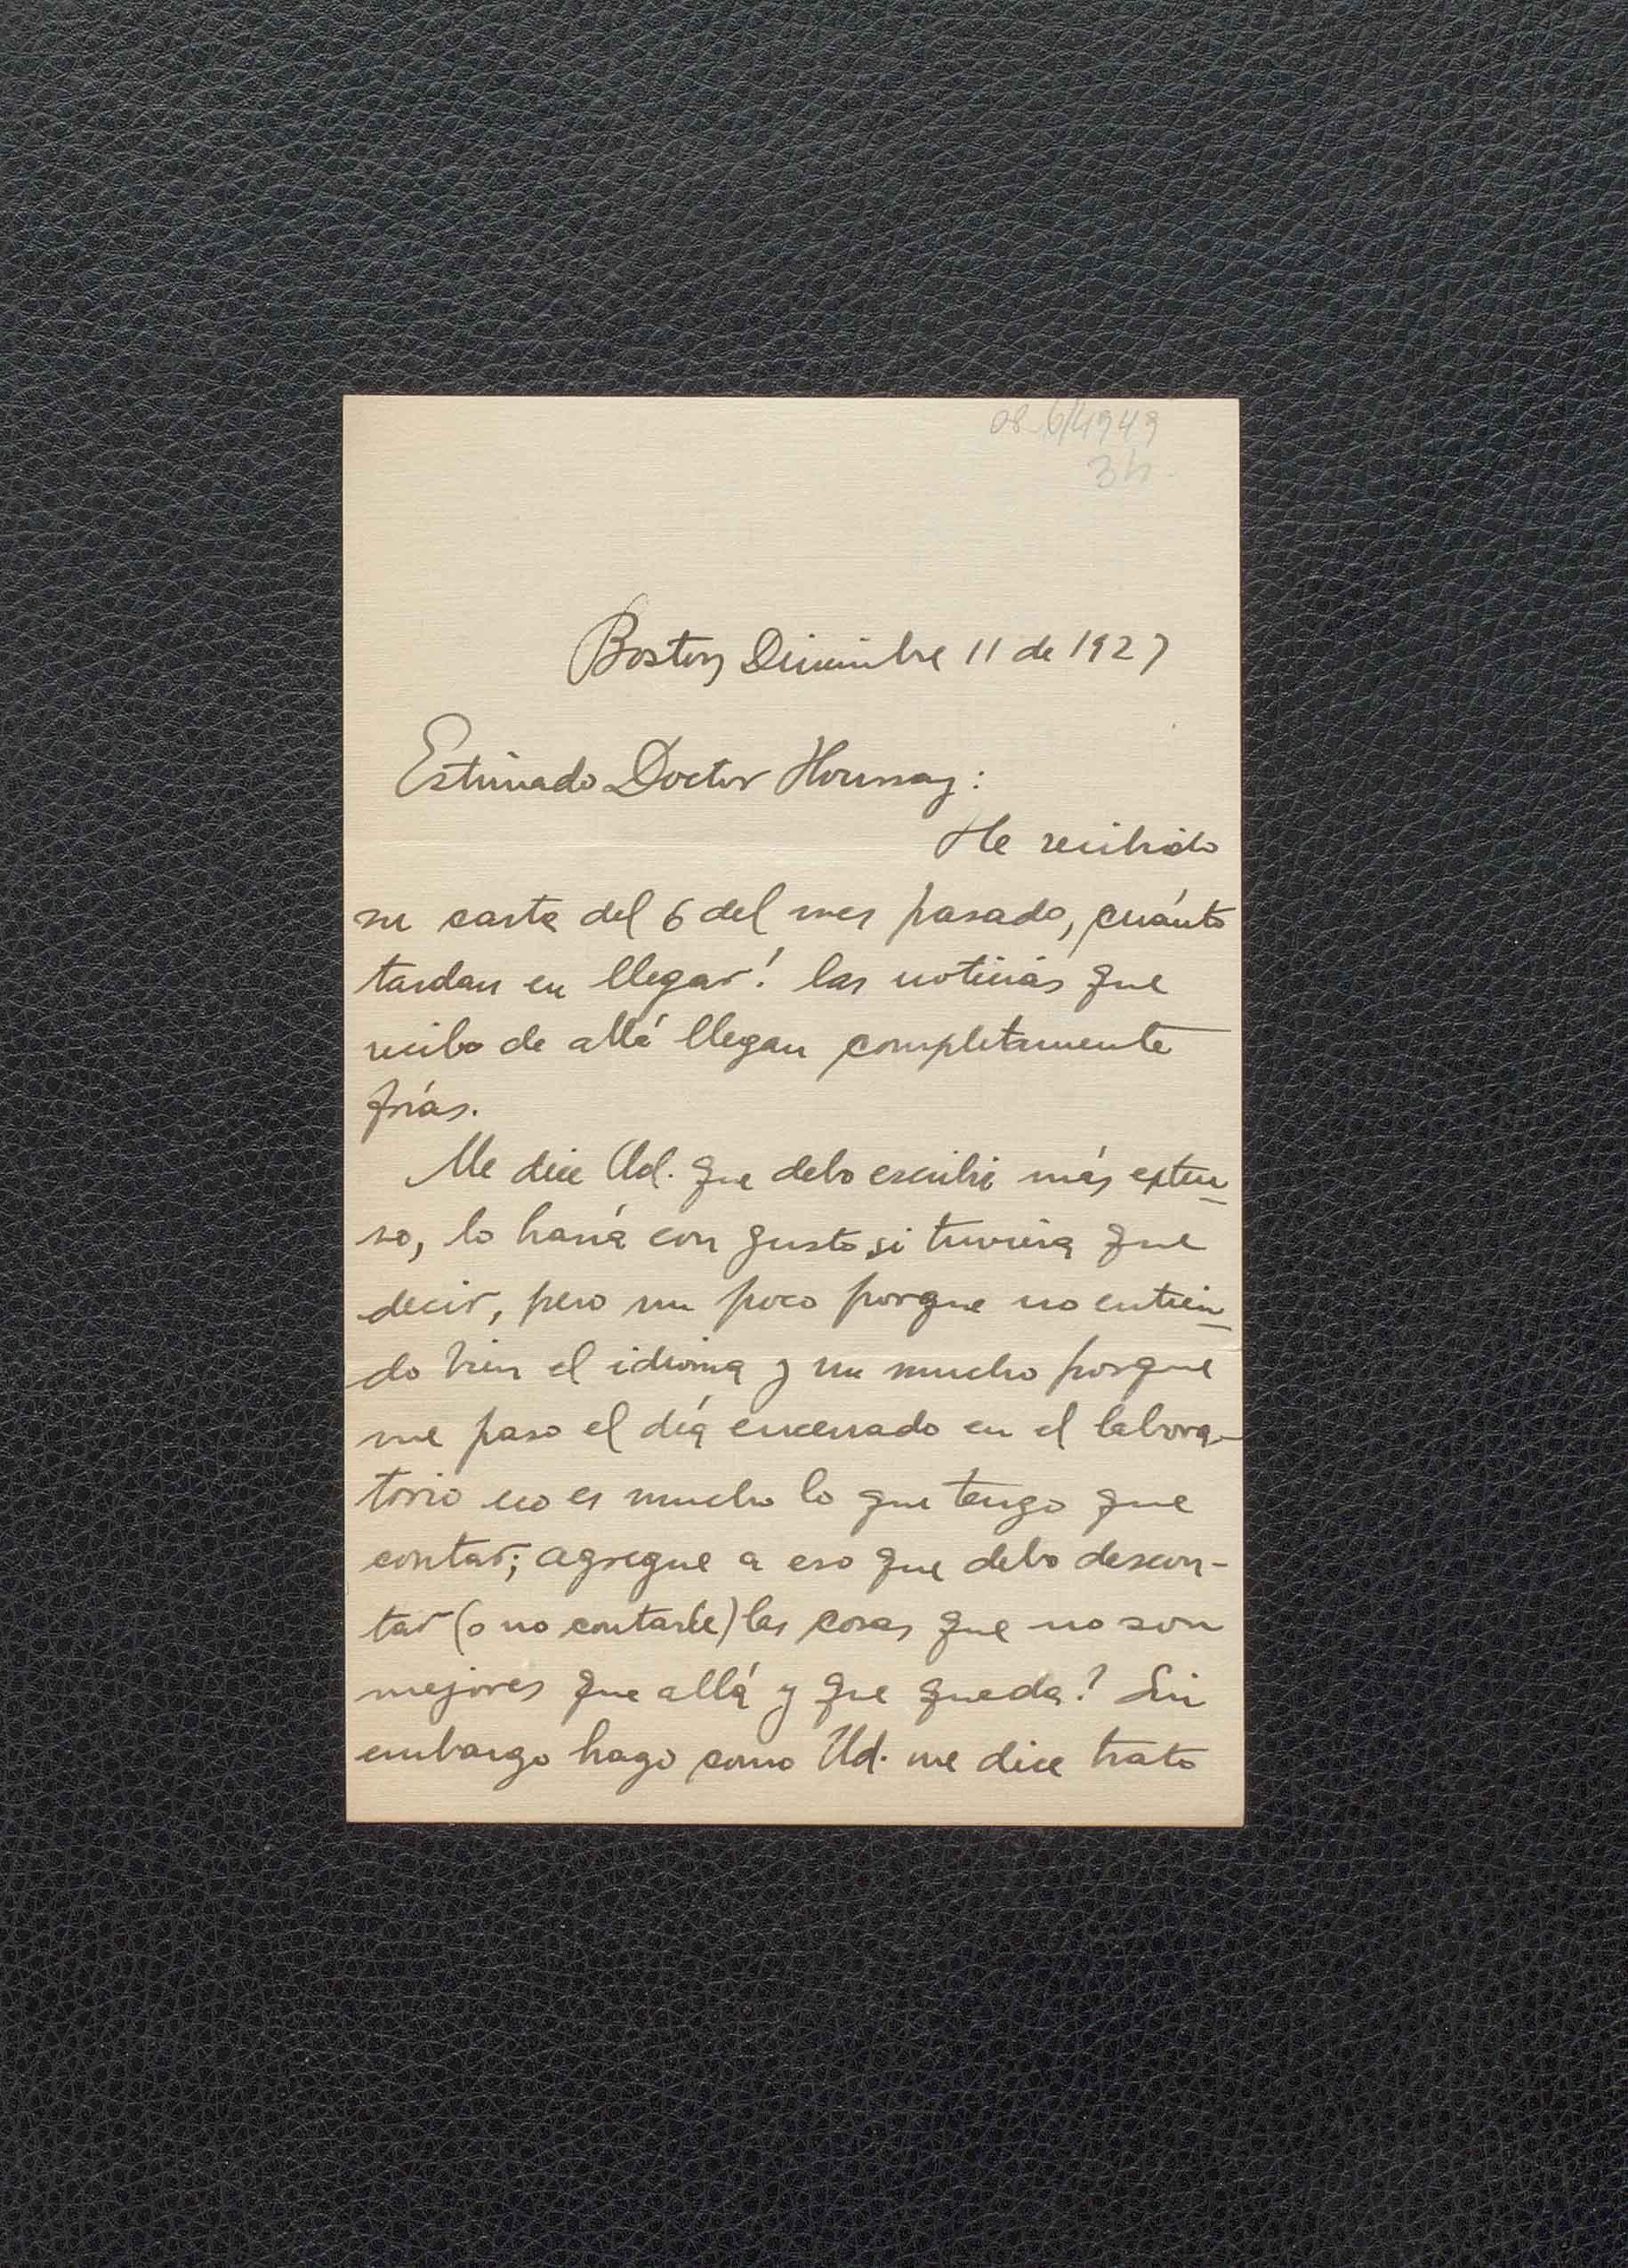 08-6/4949
34.
Boston Diciembre 11 de 1927
Estimado Doctor Houssay:
He recibido
su carta del 6 del mes pasado, cuánto
tardan en llegar! las noticias que
recibo de allá llegan completamente
frías.
Me dice Ud. que debo escribir más exten-
so, lo haría con gusto si tuviera que
decir, pero un poco porque no entien-
do bien el idioma y un mucho porque
me paso el día encerrado en el labora-
torio no es mucho lo que tengo que
contar; agregue a eso que debo descon-
tar (o no contarle) las cosas que no son
mejores que allá y que queda? Sin
embargo hago como Ud. me dice trato